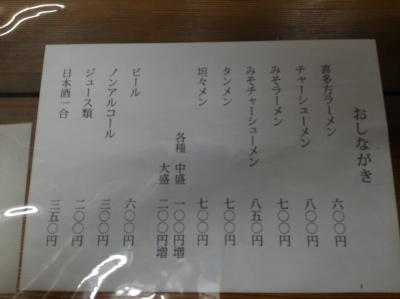 おしながき
喜多方ラーメン 六〇〇円
チャーシューメン 八〇〇円
みそラーメン 七〇〇円
みそチャーシューメン 八五〇円
タンメン 七〇〇円
坦々メン 七〇〇円
各種 中盛 一〇〇円増
大盛 二〇〇円増
ビール 六〇〇円
ノンアルコール 三〇〇円
ジュース類 二〇〇円
日本酒一合 三五〇円